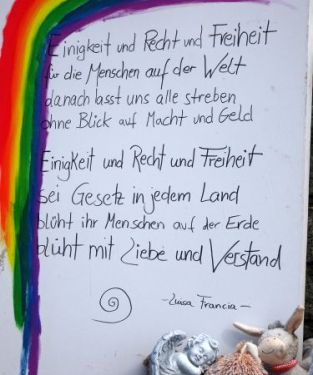 Einigkeit und Recht und Freiheit
für die Menschen auf der Welt
danach lasst uns alle streben
ohne Blick auf Macht und Geld
Einigkeit und Recht und Freiheit
sei Gesetz in jedem Land
blüht ihr Menschen auf der Erde
blüht mit Liebe und Verstand
-Luisa Francia-